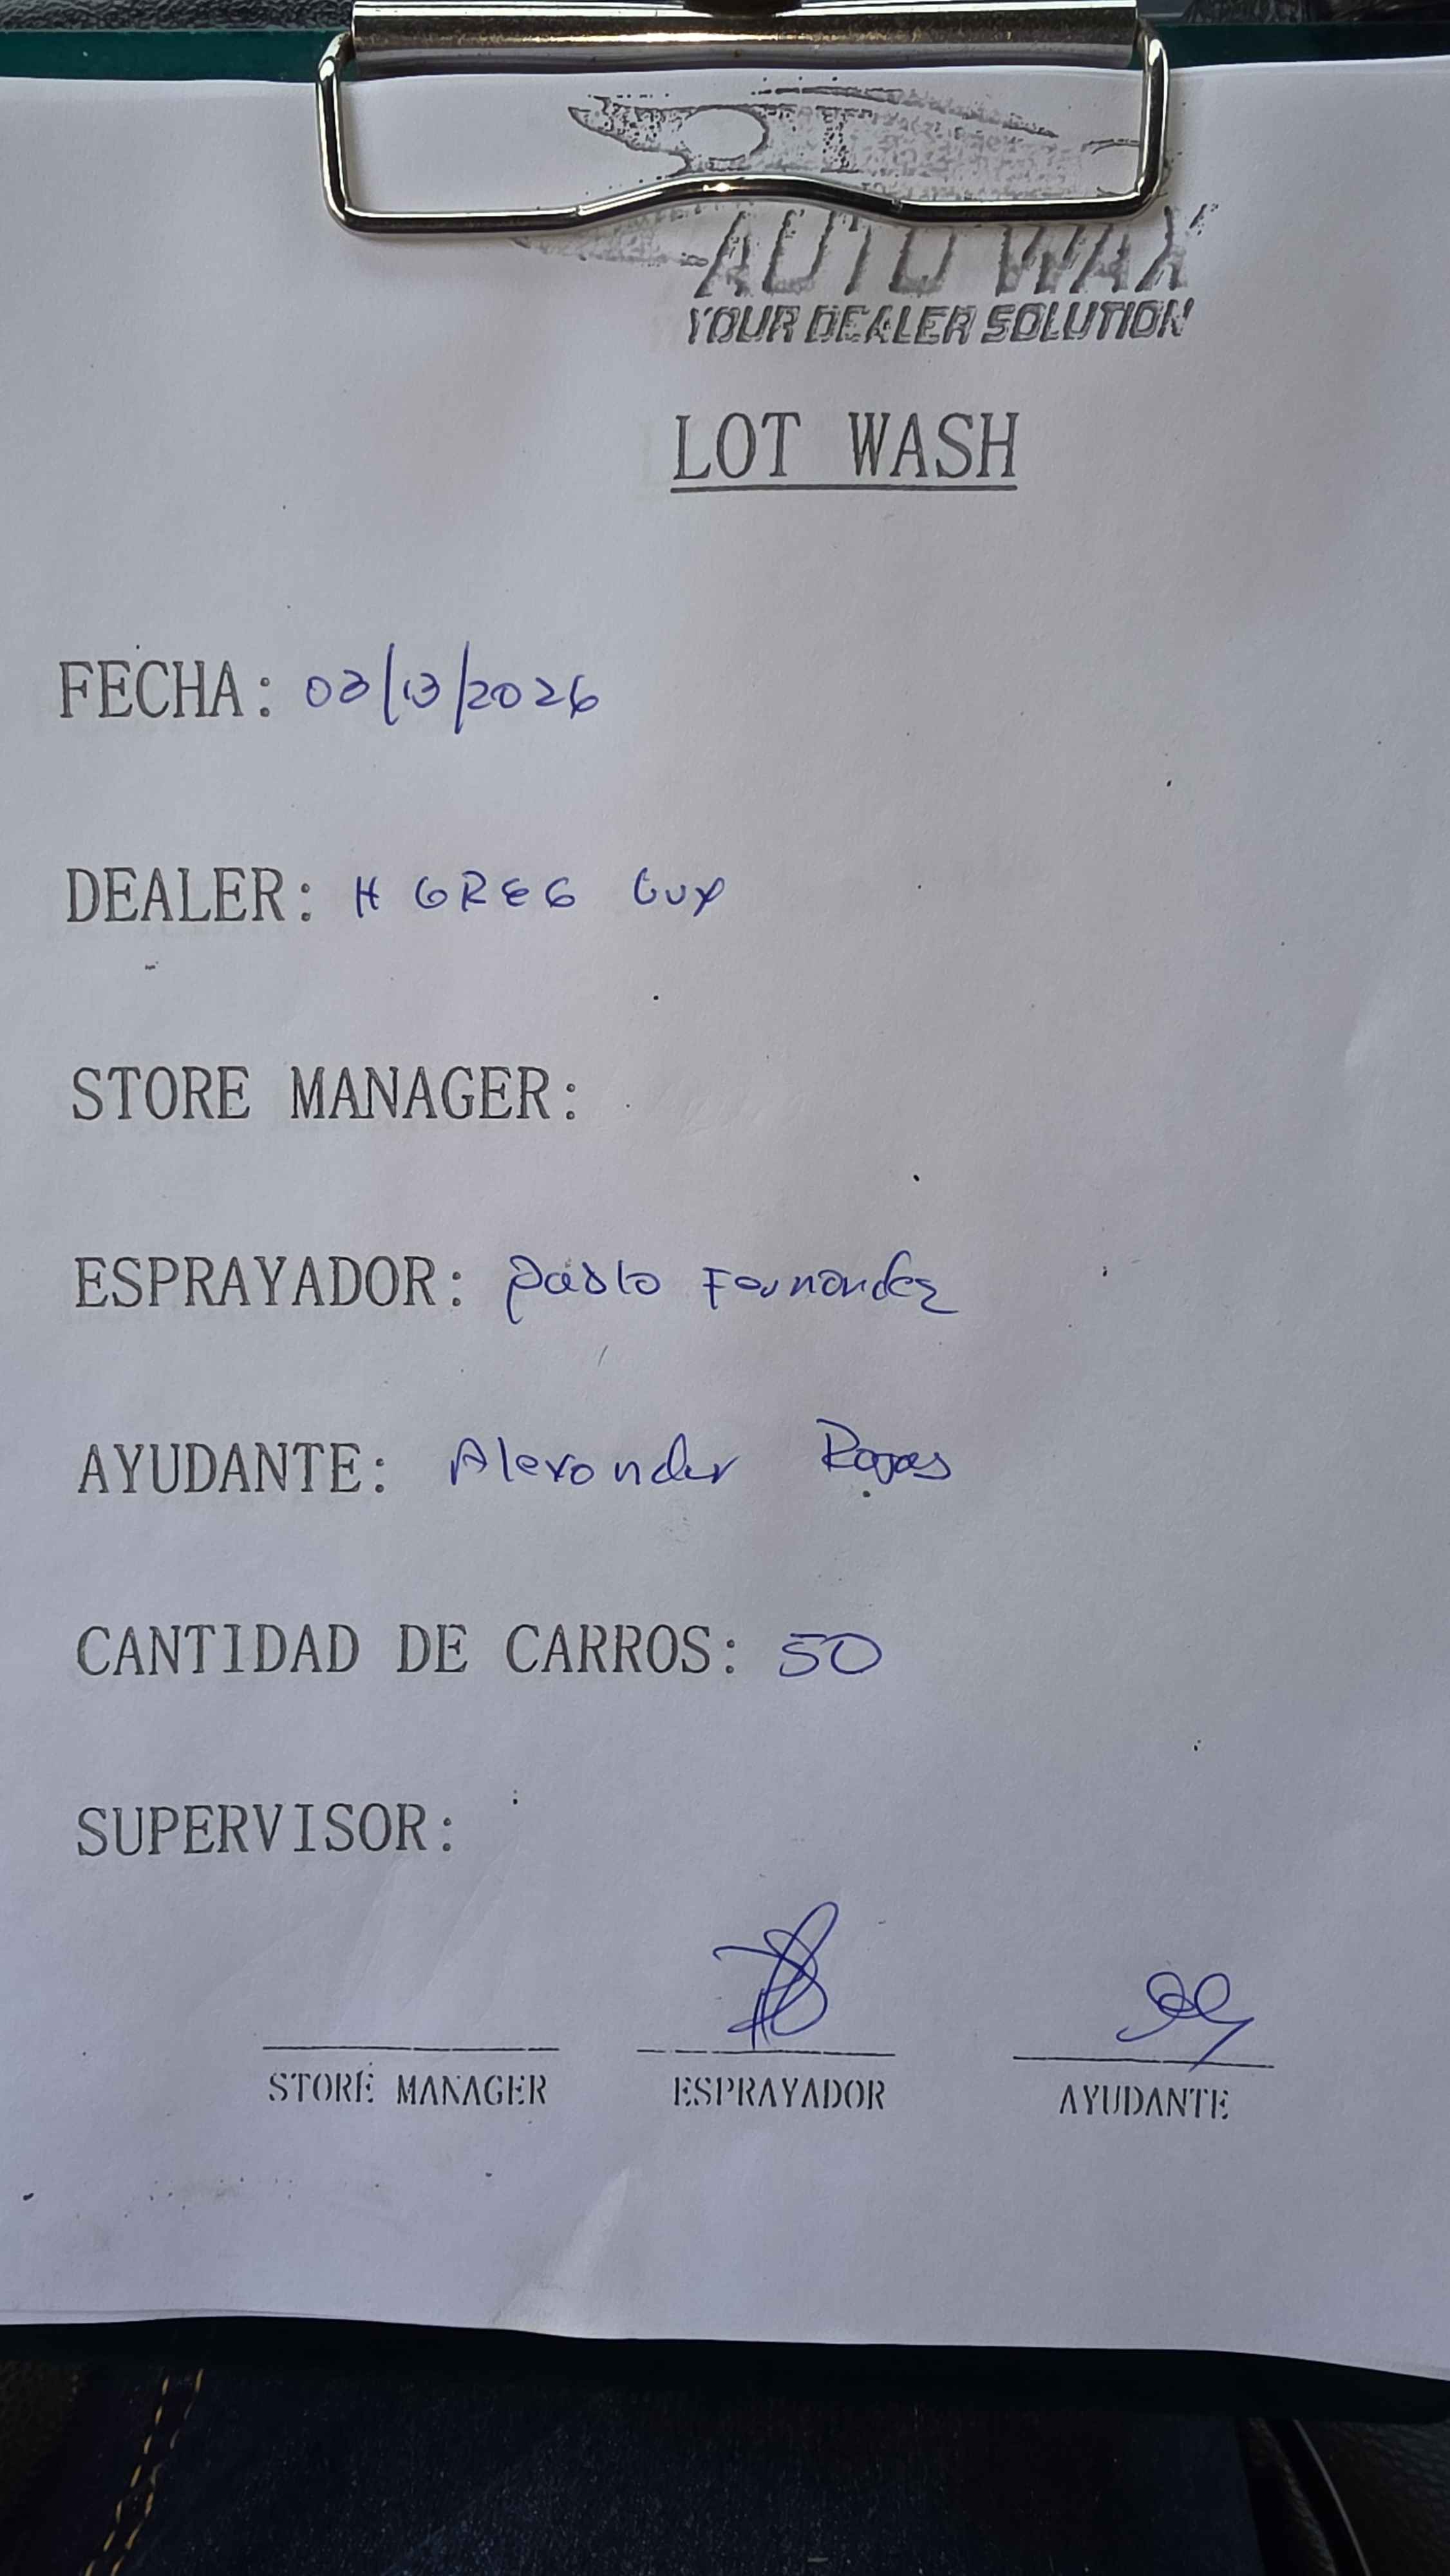 AUTO WAX
YOUR DEALER SOLUTION
LOT WASH
FECHA: 03/13/2026
DEALER: H GREG Guy
STORE MANAGER:
ESPRAYADOR: Pablo Fernandez
AYUDANTE: Alexander Rojas
CANTIDAD DE CARROS: 50
SUPERVISOR:
STORE MANAGER ESPRAYADOR AYUDANTE